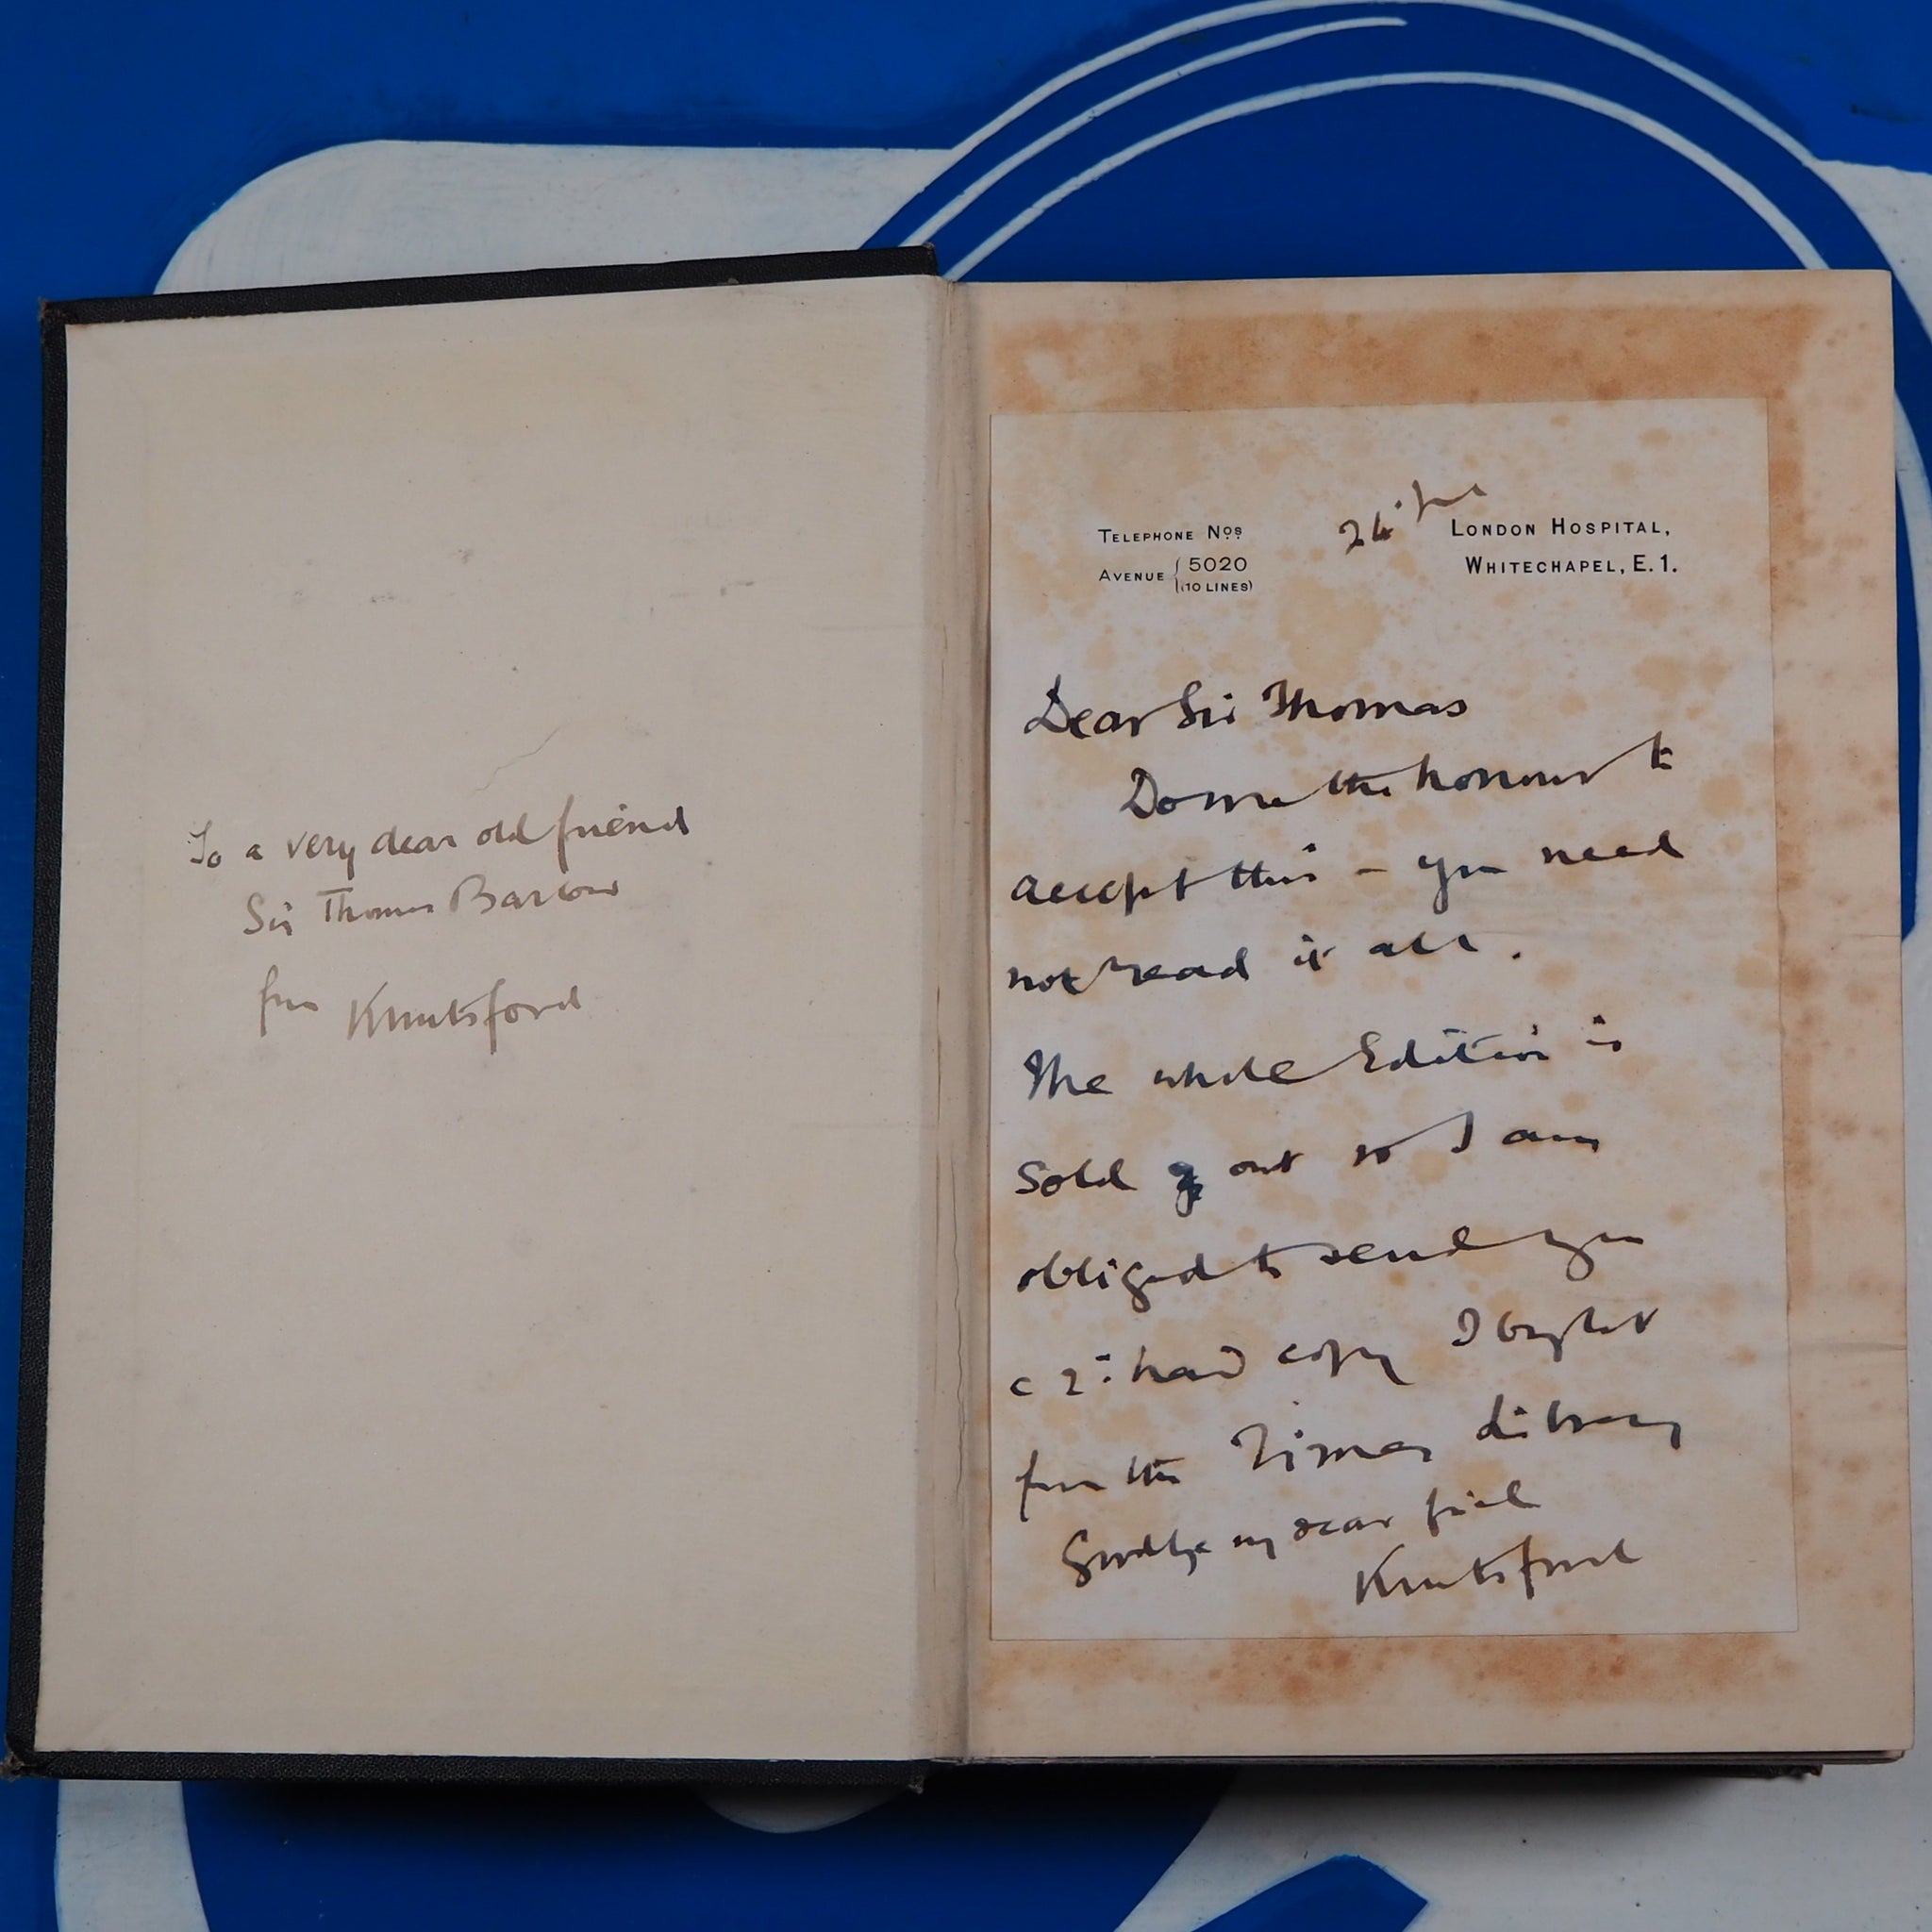 To a very dear old friend
Sir Thomas Barlow
from Knutsford
TELEPHONE Nos.
AVENUE { 5020
(10 LINES)
24
LONDON HOSPITAL,
WHITECHAPEL, E.1.
Dear Sir Thomas
Do me the honour to
accept this – you need
not read it all.
The whole Edition is
sold out so I am
obliged to send you
a 2nd hand copy I bought
from the Times Library
Goodbye my dear friend
Knutsford